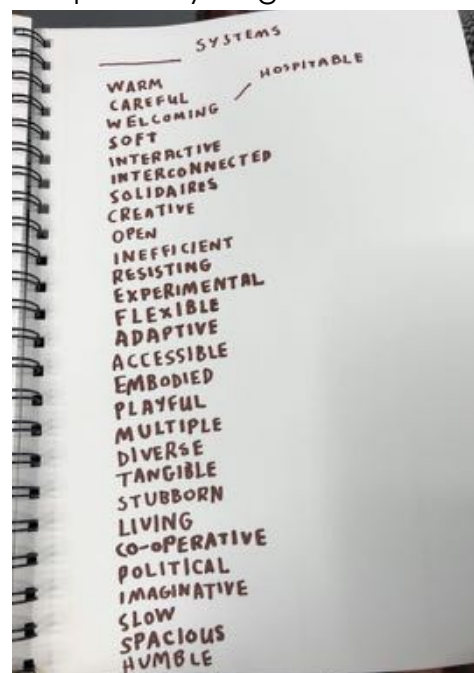 ______ SYSTEMS
WARM
CAREFUL
WELCOMING / HOSPITABLE
SOFT
INTERACTIVE
INTERCONNECTED
SOLIDAIRES
CREATIVE
OPEN
INEFFICIENT
RESISTING
EXPERIMENTAL
FLEXIBLE
ADAPTIVE
ACCESSIBLE
EMBODIED
PLAYFUL
MULTIPLE
DIVERSE
TANGIBLE
STUBBORN
LIVING
CO-OPERATIVE
POLITICAL
IMAGINATIVE
SLOW
SPACIOUS
HUMBLE